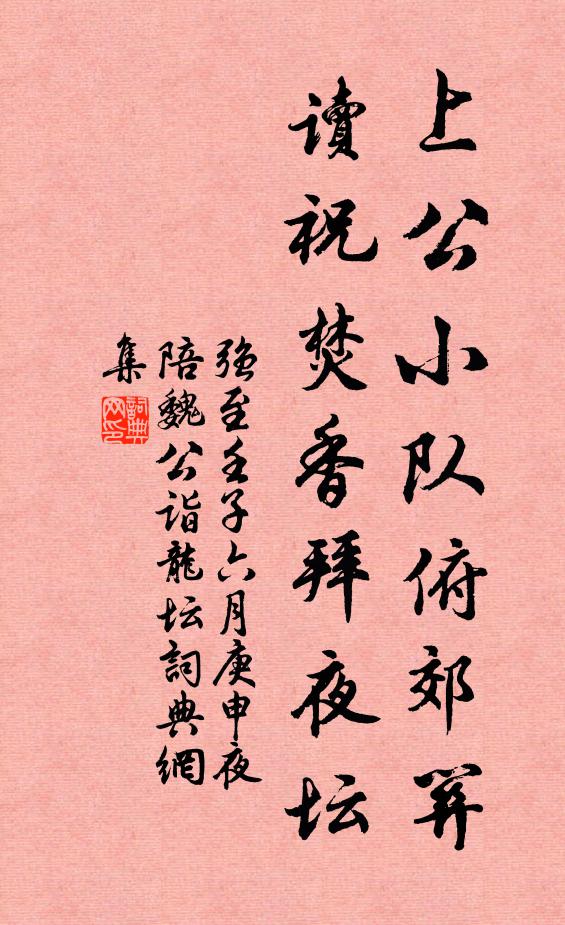 上公小队俯郊关
讀祝焚香拜夜坛
强至壬子六月庚申夜
陪魏公诣龍坛詞典網
集
詞典网印